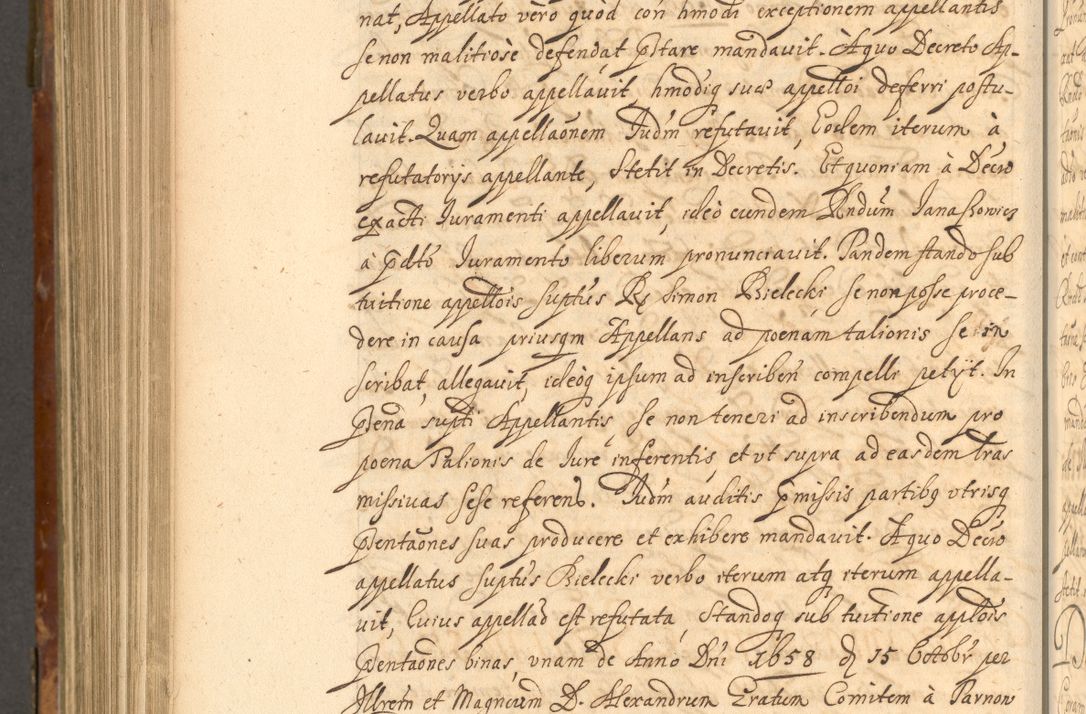 nat, Appellato vero quòd con hmodi exceptionem appellantis
se non malitiosè defendat pstare mandavit. A quo Decreto Ap-
pellatus verbo appellavit hmodiq suæ appelloi deferri postu-
lavit. Quam appellaonem Judm refutavit, Eodem iterum à
refutatorijs appellante, Stetit in Decretis. Et quoniam à Decto
exacti Juramenti appellavit, ideò eundem Rndum Janaszowicz
à pdtó Juramento liberum pronunciavit. Tandem stando sub
tuitione appellois suptus Rs Simon Bielecki se non posse proce-
dere in causa priusqm Appellans ad poenam talionis se in
scribat, allegavit, ideoq ipsum ad inscriben compelli petijt. In
pena supti Appellantis se non teneri ad inscribendum pro
poena Talionis de Jure inferentis, et vt supra ad easdem lras
missivas sese referens. Judm auditis pmissis partibq vtrisq
pentaones suas producere et exhibere mandavit. A quo Decto
appellatus suptus Bielecki verbo iterum atq iterum appella-
vit, Cuius appellao est refutata, Standoq sub tuitione applois
pentaones binas, vnam de Anno Dni 1658 d 15 Octobr per
Illretm et Magncum D. Alexandrum Eratum Comitem à Tarnow